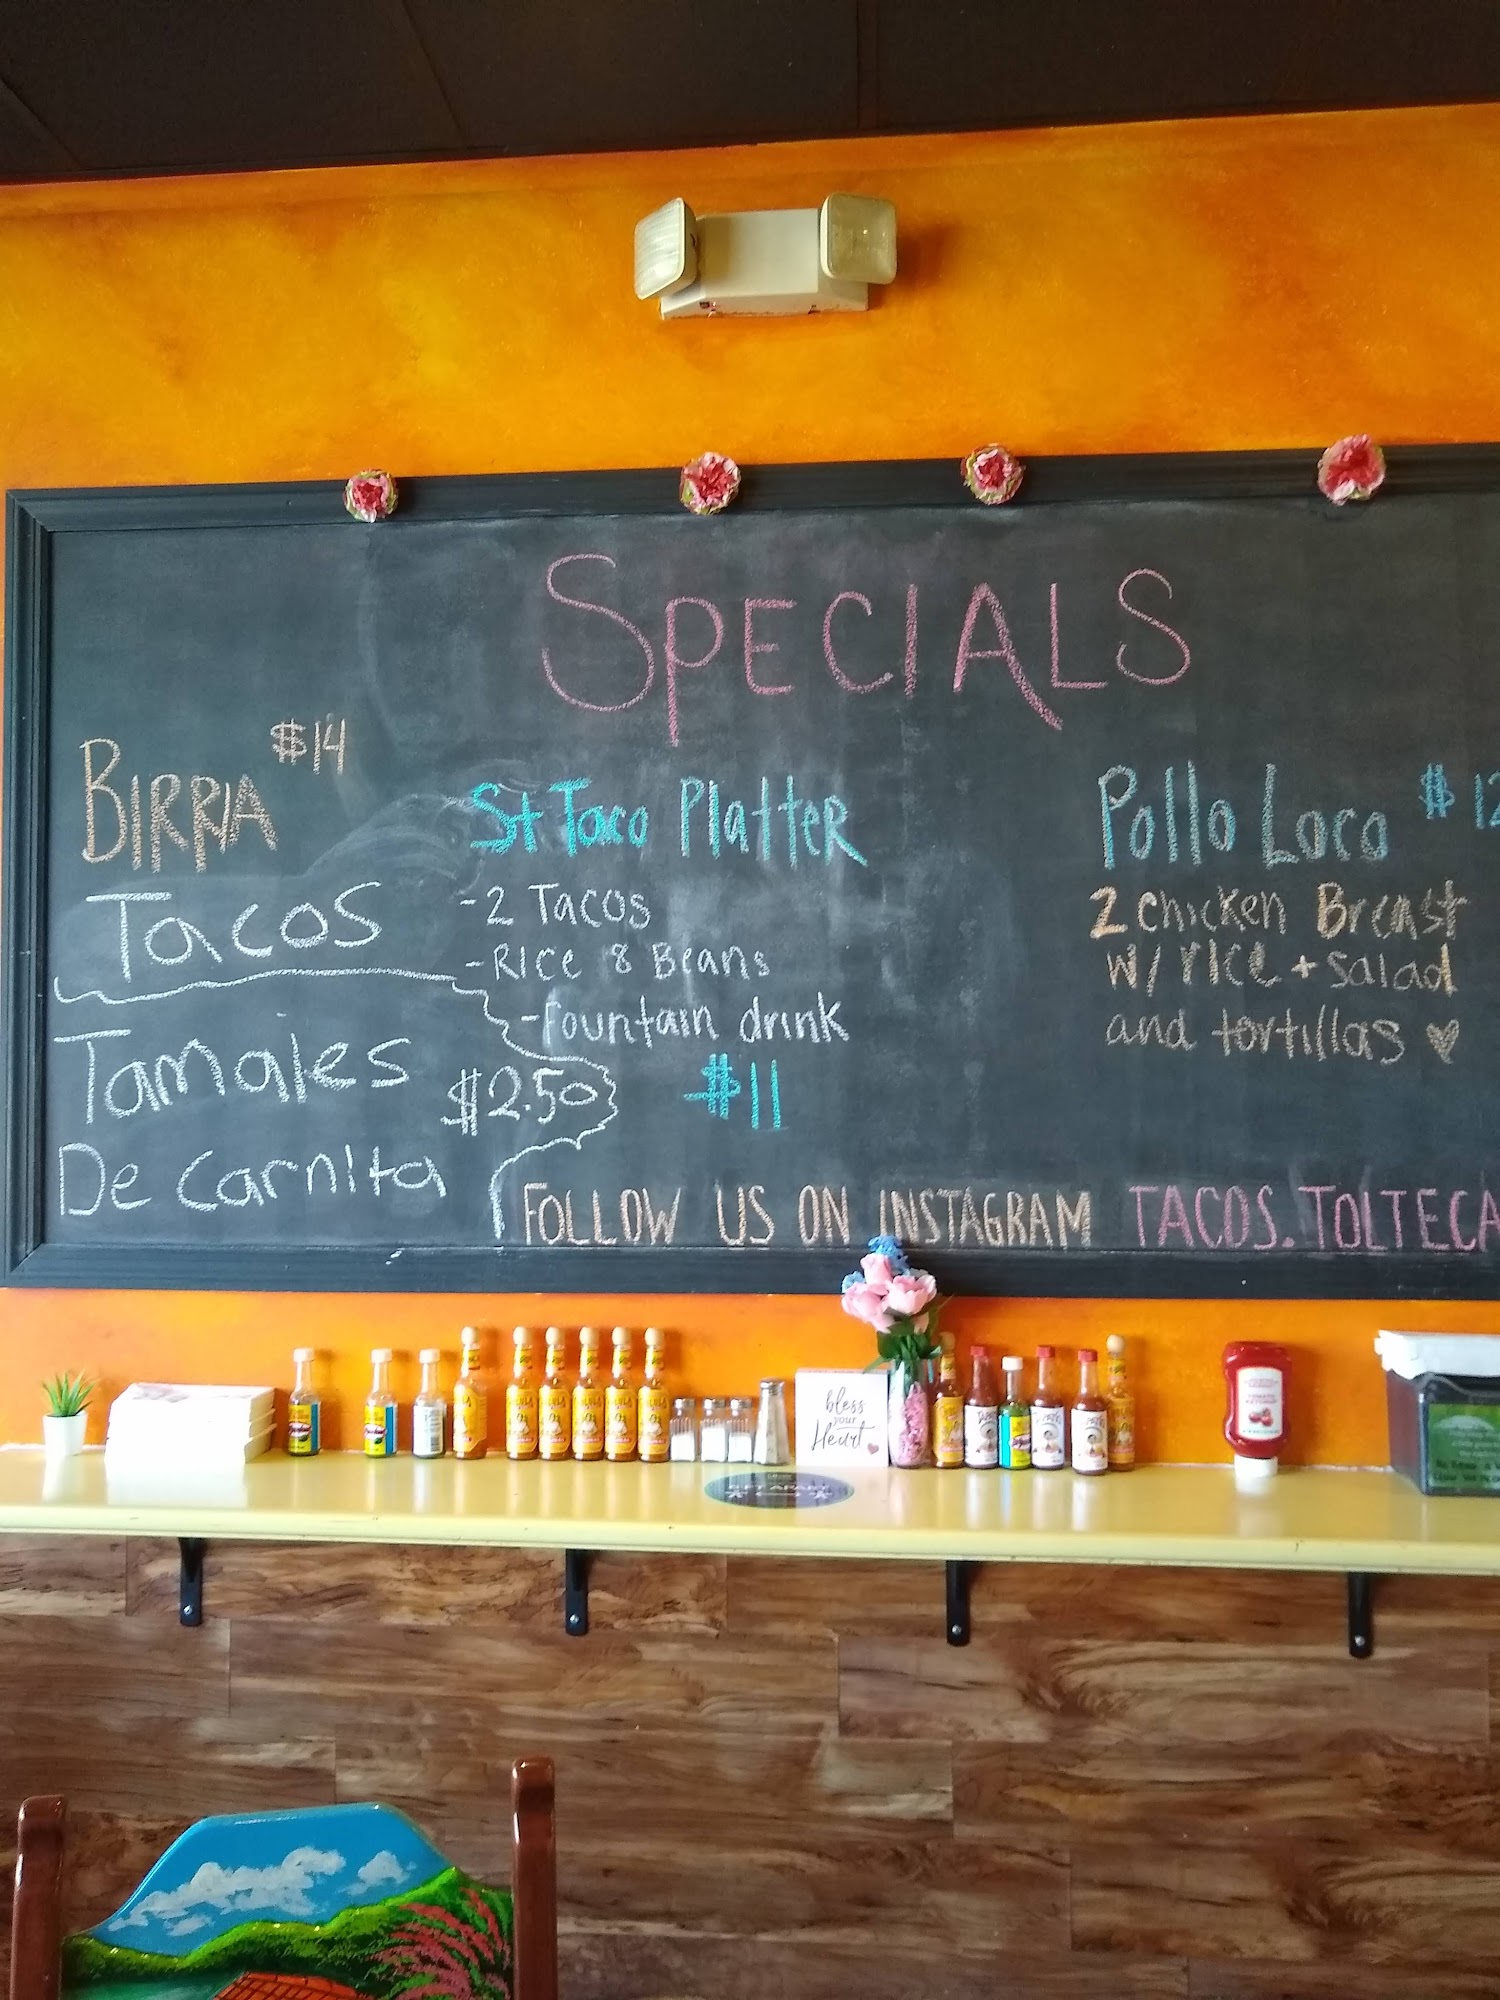 SPECIALS
BIRRIA $14
TACOS
Tamales $2.50
De Carnita
St Taco PlatteR
-2 TACOS
-RICE & Beans
-fountain drink
$11
Pollo Loco $12
2 chicken Breast
w/ rice + salad
and tortillas
FOLLOW US ON INSTAGRAM TACOS.TOLTECA
bless
your
Heart
TOMATO
KETCHUP